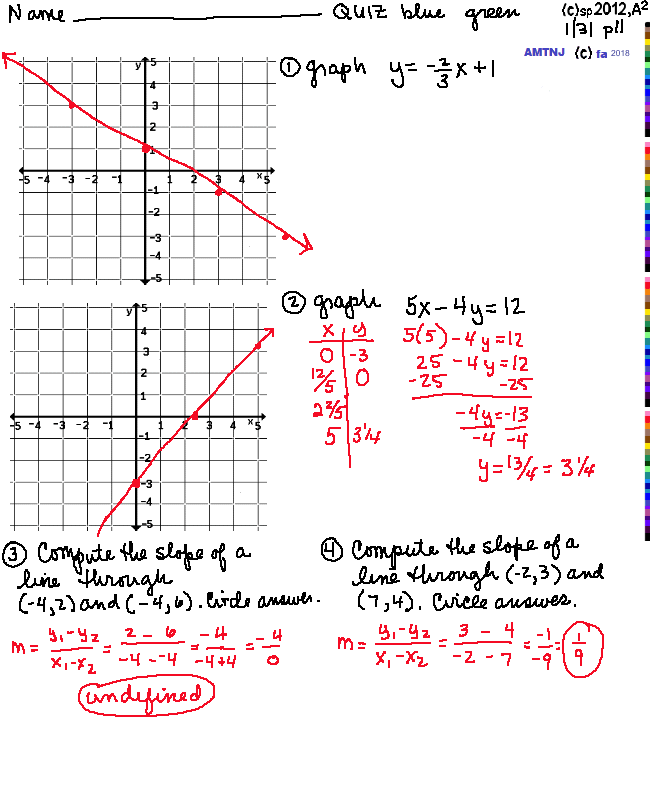 Name QUIZ blue green (c)sp2012,A²
1/31 p11
AMTNJ (c) fa 2018
① graph y = -2/3x + 1
y 5
4
3
2
1
-5 -4 -3 -2 -1 1 2 3 4 x 5
-1
-2
-3
-4
-5
② graph 5x - 4y = 12
x y
0 -3
12/5 0
2 2/5
5 3 1/4
5(5) - 4y = 12
25 - 4y = 12
-25 -25
-4y = -13
-4 -4
y = 13/4 = 3 1/4
y 5
4
3
2
1
-5 -4 -3 -2 -1 1 2 3 4 x 5
-1
-2
-3
-4
-5
③ Compute the slope of a
line through
(-4,2) and (-4,6). Circle answer.
m = y₁-y₂/x₁-x₂ = 2 - 6/-4 - -4 = -4/-4+4 = -4/0
undefined
④ Compute the slope of a
line through (-2,3) and
(7,4). Circle answer.
m = y₁-y₂/x₁-x₂ = 3 - 4/-2 - 7 = -1/-9 = 1/9